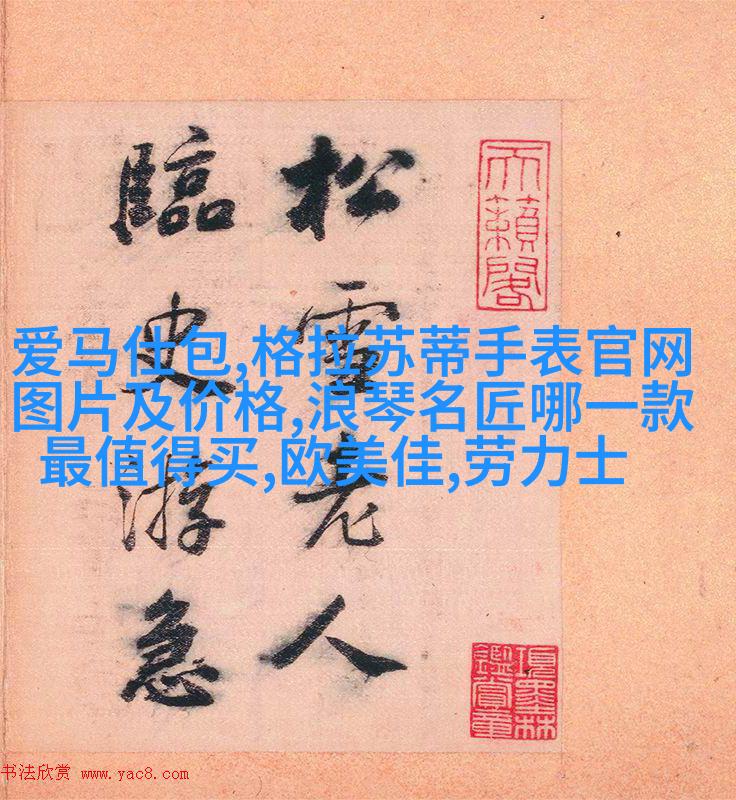 松雪老人
臨史游急
天籟閣
項墨林
鑑賞章
爱马仕包,格拉苏蒂手表官网
图片及价格,浪琴名匠哪一款
最值得买,欧美佳,劳力士
书法欣赏 www.yac8.com